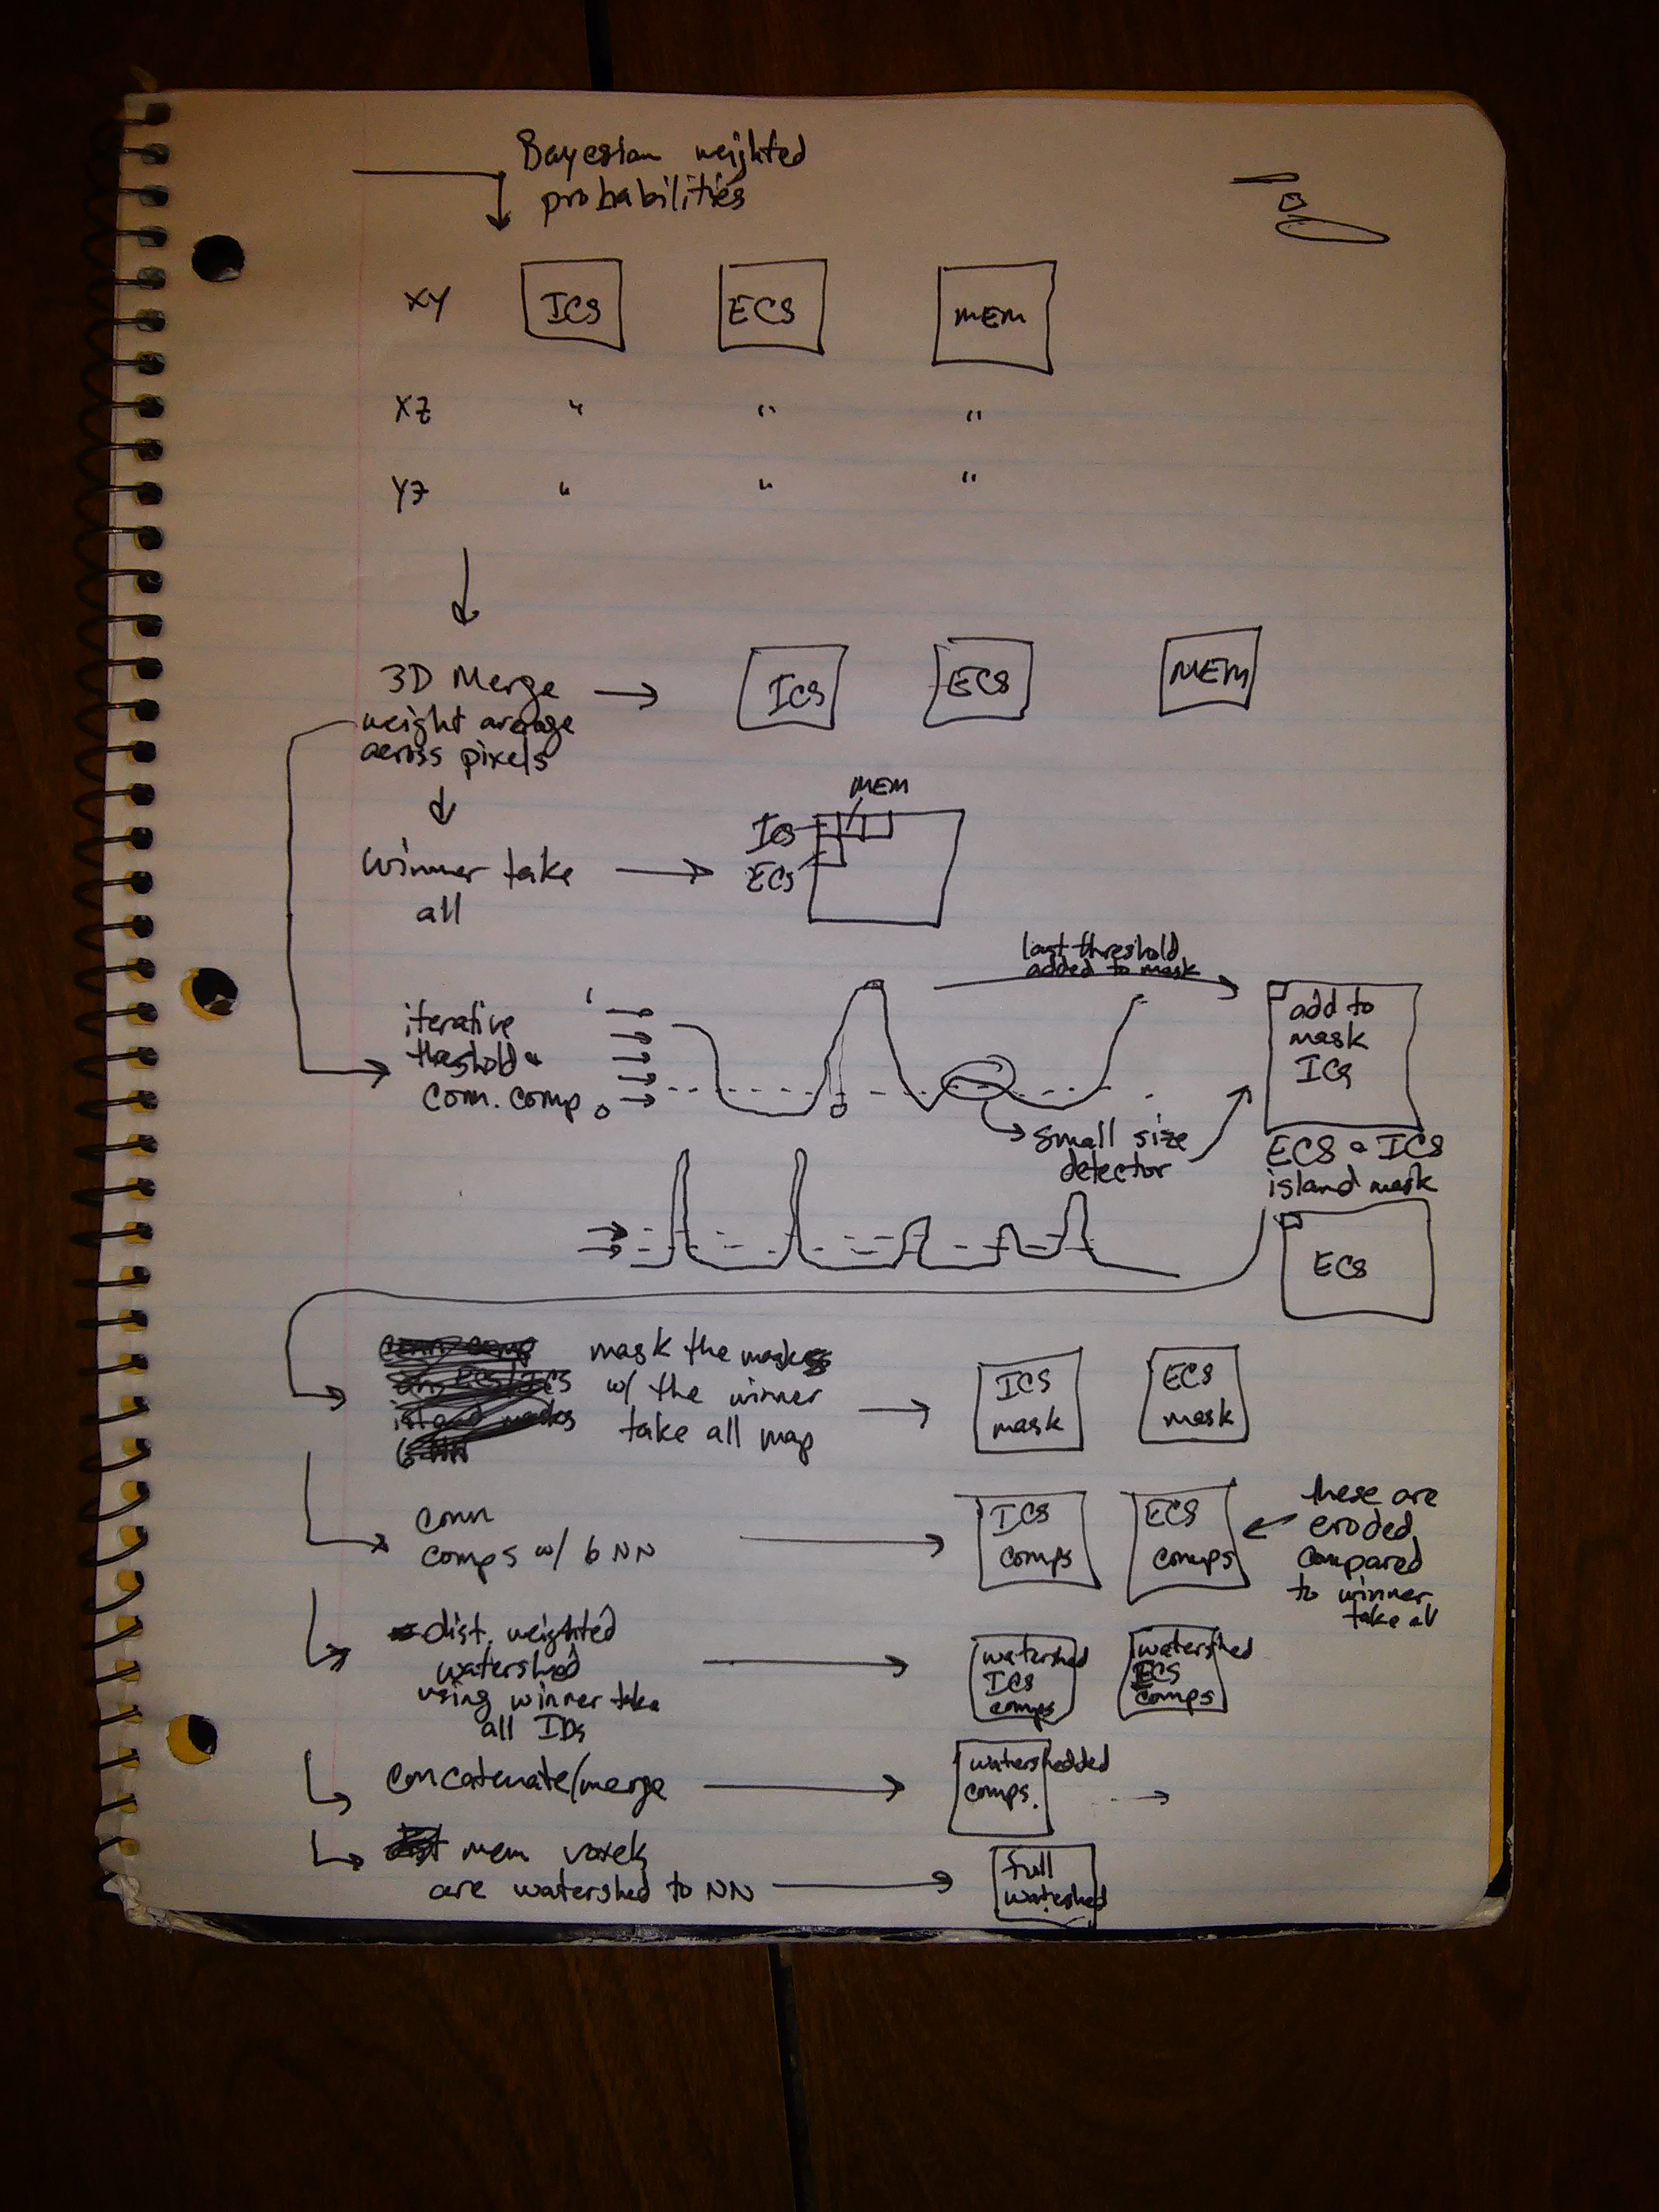 Bayesian weighted
probabilities
XY ICS ECS MEM
XZ " " "
YZ " " "
3D Merge
weight average
across pixels
ICS ECS MEM
MEM
ICS
ECS
Winner take
all
last threshold
added to mask
iterative
threshold &
conn. comp
1
0
small size
detector
add to
mask
ICS
ECS & ICS
island mask
ECS
mask the masks
w/ the winner
take all map
ICS
mask
ECS
mask
conn
comps w/ 6 NN
ICS
comps
ECS
comps
these are
eroded
compared
to winner
take all
dist. weighted
watershed
using winner take
all IDs
watershed
ICS
comps
watershed
ECS
comps
concatenate/merge
watershedded
comps.
mem voxels
are watershed to NN
full
watershed